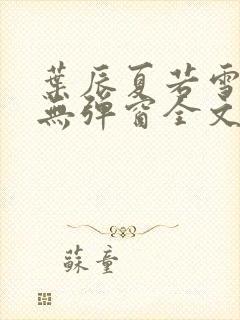 葉辰夏若雪
無彈窗全文
蘇童